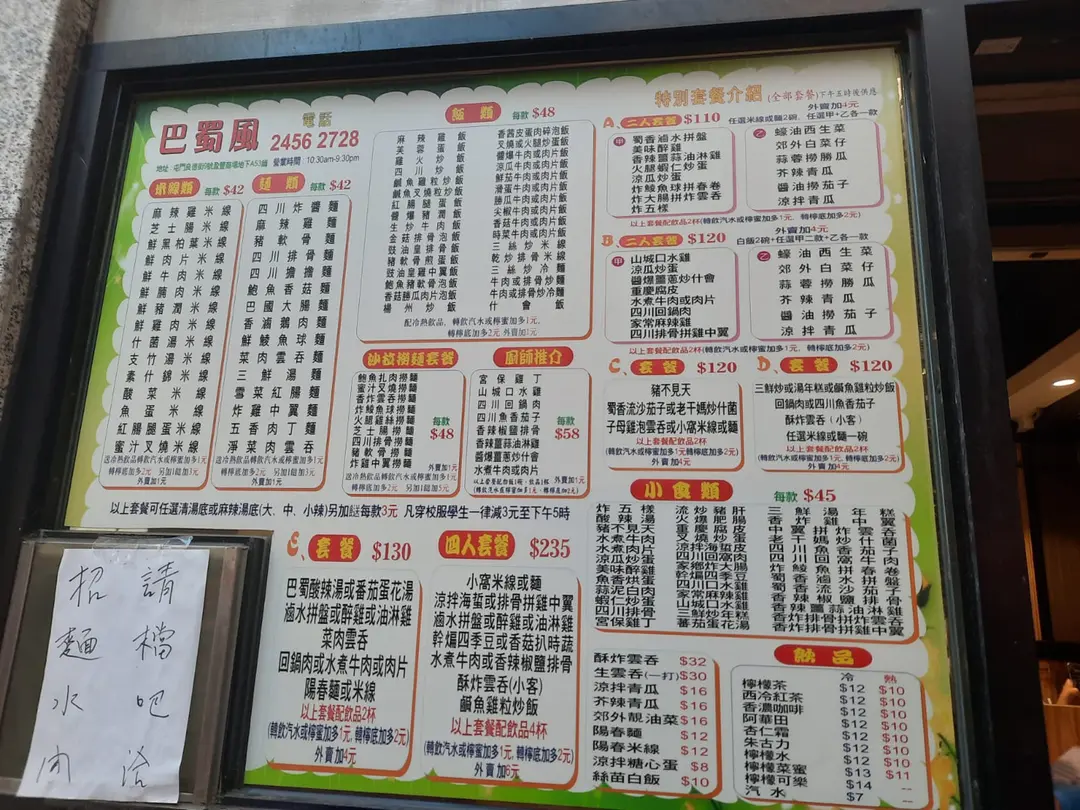 巴蜀風
電話
2456 2728
營業時間：10:30am-9:30pm
米線類 每款$42
麻辣雞米線
芝士腸米線
鮮黑柏葉米線
鮮肉片米線
鮮牛肉米線
鮮腩肉米線
鮮豬潤米線
鮮雞肉米線
什菌湯米線
支竹湯米線
素什錦米線
酸菜米線
魚蛋米線
紅腸腿蛋米線
蜜汁叉燒米線
送冷熱飲品轉飲汽水或檸蜜加多1元
轉檸底加多2元 另加1餸加3元
外賣加1元
麵類 每款$42
四川炸醬麵
麻辣雞麵
豬軟骨麵
四川排骨麵
四川擔擔麵
鮑魚香菇麵
巴國大腸麵
香滷鵝肉麵
鮮鯪魚球麵
菜肉雲吞麵
三鮮湯麵
雪菜紅腸麵
炸雞中翼麵
五香肉丁麵
淨菜肉雲吞
送冷熱飲品轉飲汽水或檸蜜加多1元
轉檸底加多2元 另加1餸加3元
外賣加1元
飯類 每款$48
麻辣雞飯
青蛋飯
雞火炒飯
四川炒飯
鹹魚雞粒炒飯
鮑魚叉燒粒炒飯
紅腸腿蛋飯
醬爆豬潤飯
生炒牛肉飯
金菇排骨泡飯
豉油皇排骨飯
豬軟骨煎蛋飯
豉油皇雞中翼飯
鮑魚豬軟骨泡飯
香菇勝瓜肉片泡飯
楊州炒飯
香茜皮蛋肉碎泡飯
叉燒或火腿炒蛋飯
醬爆牛肉或肉片飯
涼瓜牛肉或肉片飯
鮮茄牛肉或肉片飯
滑蛋牛肉或肉片飯
勝瓜牛肉或肉片飯
尖椒牛肉或肉片飯
香茄牛肉或肉片飯
時菜牛肉或肉片飯
三絲炒米線
乾炒排骨米線
三絲炒冷麵
牛肉或排骨炒麵
牛肉或排骨炒冷麵
什會飯
配冷熱飲品，轉飲汽水或檸蜜加多1元,
轉檸底加多2元 外賣加1元
沙拉撈麵套餐
鮑魚扎肉撈麵
蜜汁叉燒撈麵
香炸雲吞撈麵
炸鯪魚球撈麵
香滷雞絲撈麵
芝士腸撈麵
四川排骨撈麵
豬軟骨撈麵
炸雞中翼撈麵
每款
$48
外賣加1元
送冷熱飲品轉飲汽水或檸蜜加多1元
轉檸底加多2元 另加1餸加5元
廚師推介
宮保雞丁
山城口水雞
四川回鍋肉
四川魚香茄子
香辣椒鹽排骨
香辣薑蒜油淋雞
醬爆薑蔥炒什會
水煮牛肉或肉片
每款
$58
以上套餐配白飯1碗、飲品1杯 外賣加1元
(轉飲汽水或檸蜜加多1元,轉檸底加多2元)
以上套餐可任選清湯底或麻辣湯底(大、中、小辣)另加餸每款3元 凡穿校服學生一律減3元至下午5時
特別套餐介紹 (全部套餐)下午五時後供應
外賣加4元
A、二人套餐 $110 任選米線或麵2碗、任選甲+乙各一款
甲
蜀香滷水拼盤
美味醉雞
香辣薑蒜油淋雞
火腿蝦仁炒蛋
涼瓜炒蛋
炸鯪魚球拼春卷
炸大腸拼炸雲吞
炸五樣
乙
蠔油西生菜
郊外白菜仔
蒜蓉撈勝瓜
芥辣青瓜
醬油撈茄子
涼拌青瓜
以上套餐配飲品2杯(轉飲汽水或檸蜜加多1元、轉檸底加多2元)
外賣加4元
B、二人套餐 $120 白飯2碗+任選甲二款+乙各一款
甲
山城口水雞
涼瓜炒蛋
醬爆薑蔥炒什會
重慶腐皮
水煮牛肉或肉片
四川回鍋肉
家常麻辣雞
四川排骨拼雞中翼
乙
蠔油西生菜
郊外白菜仔
蒜蓉撈勝瓜
芥辣青瓜
醬油撈茄子
涼拌青瓜
以上套餐配飲品2杯(轉飲汽水或檸蜜加多1元、轉檸底加多2元)
C、套餐 $120
豬不見天
蜀香流沙茄子或老干媽炒什菌
子母雞泡雲吞或小窩米線或麵
以上套餐配飲品2杯
(轉飲汽水或檸蜜加多1元、轉檸底加多2元)
外賣加4元
D、套餐 $120
三鮮炒或湯年糕或鹹魚雞粒炒飯
回鍋肉或四川魚香茄子
酥炸雲吞(小客)
任選米線或麵一碗
以上套餐配飲品2杯
(轉飲汽水或檸蜜加多1元、轉檸底加多2元)
外賣加4元
E、套餐 $130
巴蜀酸辣湯或番茄蛋花湯
滷水拼盤或醉雞或油淋雞
菜肉雲吞
回鍋肉或水煮牛肉或肉片
陽春麵或米線
以上套餐配飲品2杯
(轉飲汽水或檸蜜加多1元、轉檸底加多2元)
外賣加4元
四人套餐 $235
小窩米線或麵
涼拌海蜇或排骨拼雞中翼
滷水拼盤或醉雞或油淋雞
幹煸四季豆或香菇扒時蔬
水煮牛肉或香辣椒鹽排骨
酥炸雲吞(小客)
鹹魚雞粒炒飯
以上套餐配飲品4杯
(轉飲汽水或檸蜜加多1元、轉檸底加多2元)
外賣加6元
小食類 每款$45
炸五樣
酸辣湯
豬不見天
水煮牛肉
水煮肉片
涼瓜炒蛋
美味醉雞
魚香烘蛋
蒜泥白肉
蝦仁炒蛋
四川排骨
宮保雞丁
流炒豬肝
火爆肥腸
重慶腐皮
叉燒炒蛋
涼拌海蜇皮
四川回窩肉
家鄉炸大腸
幹煸四季豆
四川口水雞
家常麻辣雞
山城口水雞
三鮮炒年糕
蕃茄蛋花湯
三鮮湯年糕
香炸雞中翼
香辣椒鹽排骨
香辣薑蒜油淋雞
香炸排骨拼雞中翼
酥炸雲吞 $32
生雲吞(一打) $30
涼拌青瓜 $16
芥辣青瓜 $16
郊外靚油菜 $16
陽春麵 $12
陽春米線 $12
涼拌糖心蛋 $8
絲苗白飯 $10
飲品
冷 熱
檸檬茶 $12 $10
西冷紅茶 $12 $10
香濃咖啡 $12 $10
阿華田 $12 $10
杏仁霜 $12 $10
朱古力 $12 $10
檸檬水 $12 $10
檸檬菜蜜 $13 $11
檸檬可樂 $14 --
汽水 $7 --
招麵水
請檔吧